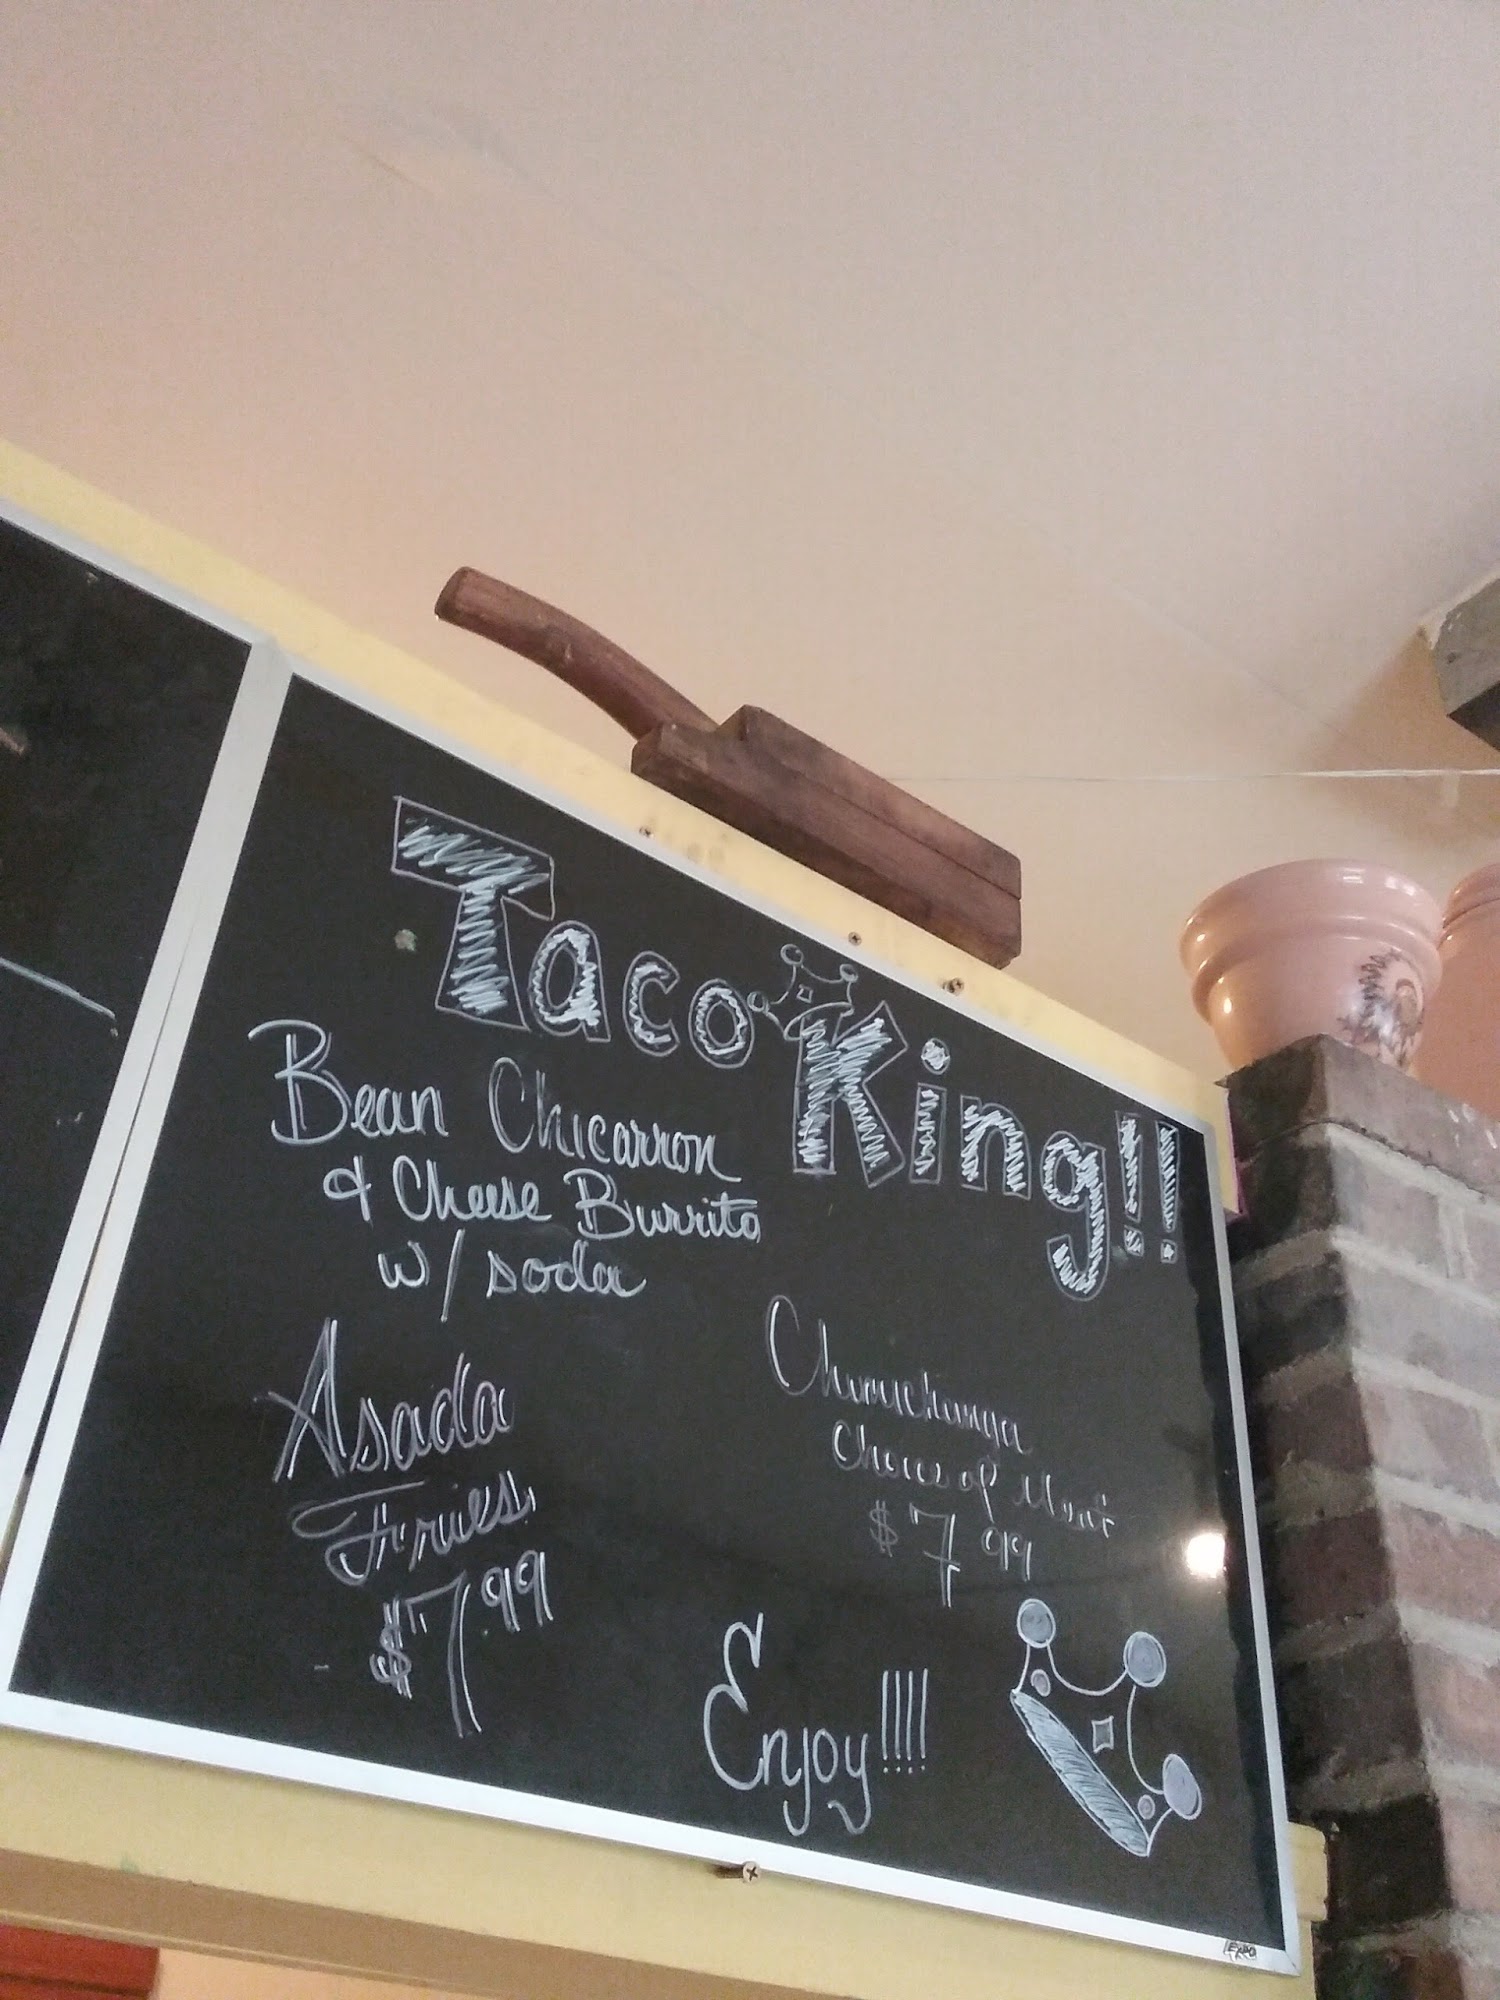 Taco King!!
Bean Chicarron
& Cheese Burrito
w/ soda
Asada
Fries
$7.99
Chimichanga
Choice of Meat
$7.99
Enjoy!!!!
EXPO